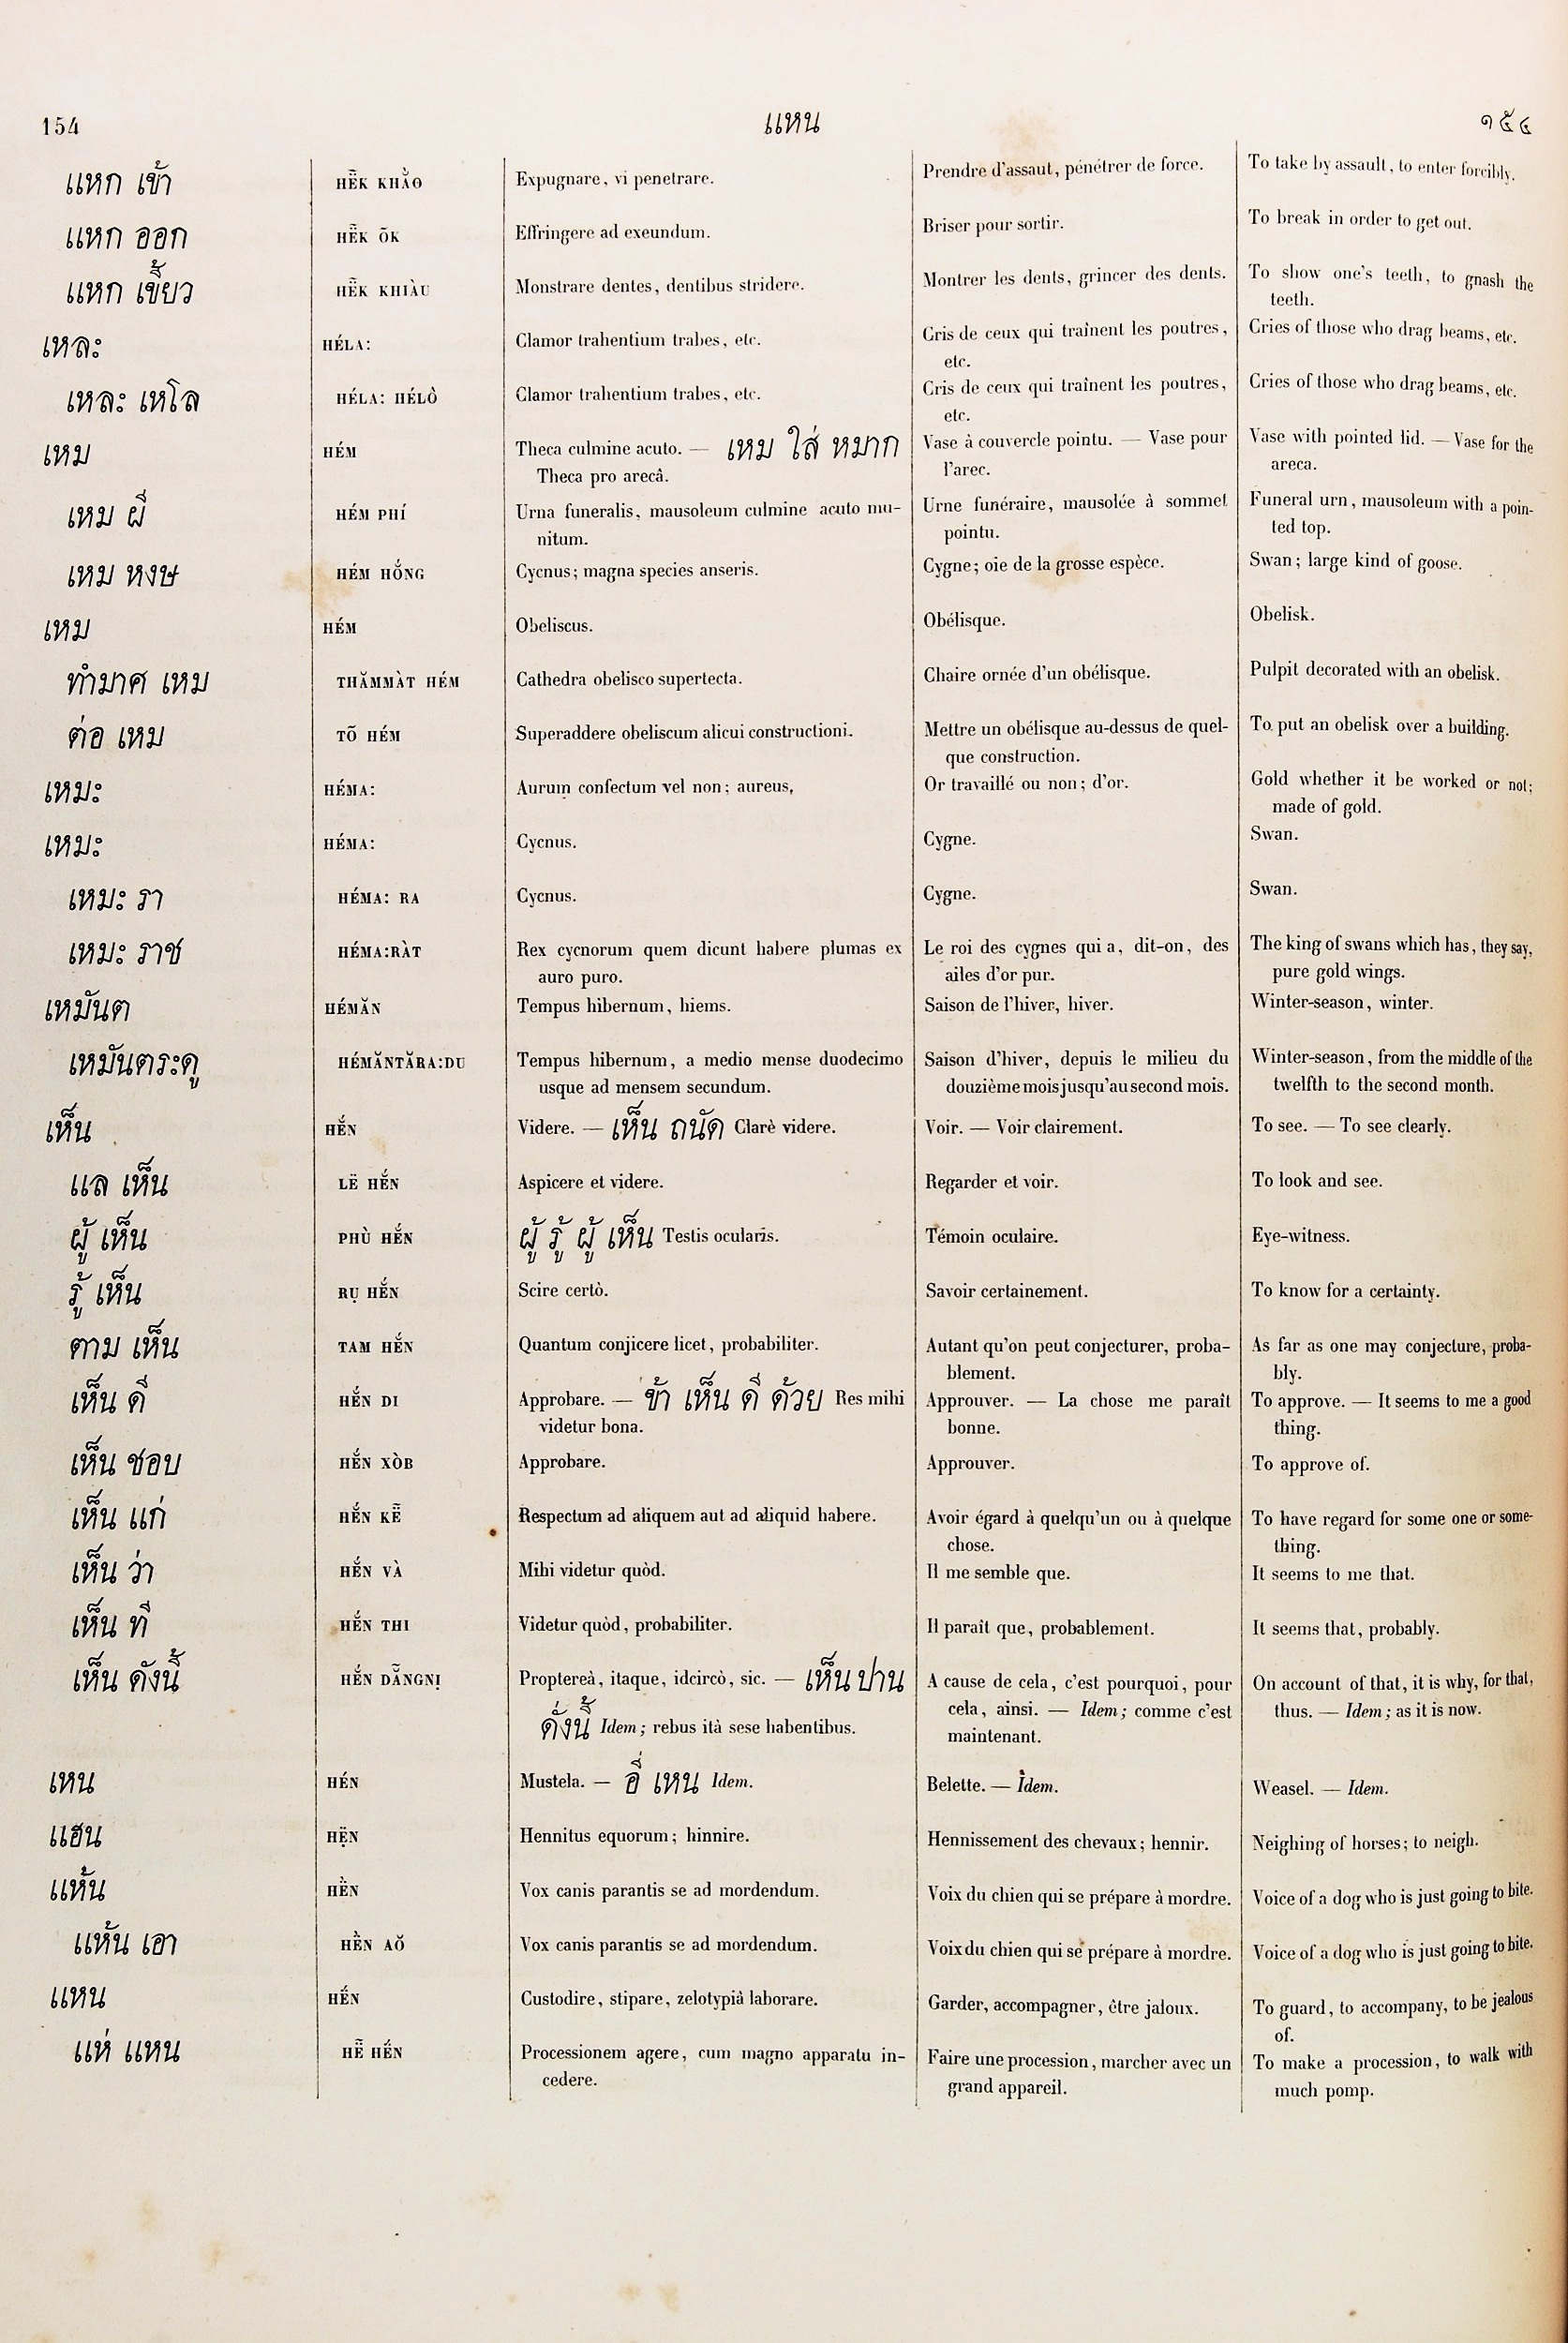 154 แหน ๑๕๔
แหก เข้า HẼK KHÀO Expugnare, vi penetrare. Prendre d'assaut, pénétrer de force. To take by assault, to enter forcibly.
แหก ออก HẼK ÕK Effringere ad exeundum. Briser pour sortir. To break in order to get out.
แหก เขี้ยว HẼK KHIÀU Monstrare dentes, dentibus stridere. Montrer les dents, grincer des dents. To show one's teeth, to gnash the
teeth.
เหละ HÉLA: Clamor trahentium trabes, etc. Cris de ceux qui traînent les poutres, Cries of those who drag beams, etc.
etc.
เหละ เหโล HÉLA: HÉLÔ Clamor trahentium trabes, etc. Cris de ceux qui traînent les poutres, Cries of those who drag beams, etc.
etc.
เหม HÉM Theca culmine acuto. — เหม ใส่ หมาก Vase à couvercle pointu. — Vase pour Vase with pointed lid. — Vase for the
Theca pro arecâ. l'arec. areca.
เหม ผี HÉM PHÍ Urna funeralis, mausoleum culmine acuto mu- Urne funéraire, mausolée à sommet Funeral urn, mausoleum with a poin-
nitum. pointu. ted top.
เหม หงษ HÉM HŎ́NG Cycnus; magna species anseris. Cygne; oie de la grosse espèce. Swan; large kind of goose.
เหม HÉM Obeliscus. Obélisque. Obelisk.
ทำมาศ เหม THĂMMÀT HÉM Cathedra obelisco supertecta. Chaire ornée d'un obélisque. Pulpit decorated with an obelisk.
ต่อ เหม TÕ HÉM Superaddere obeliscum alicui constructioni. Mettre un obélisque au-dessus de quel- To put an obelisk over a building.
que construction.
เหมะ HÉMA: Aurum confectum vel non; aureus, Or travaillé ou non; d'or. Gold whether it be worked or not;
made of gold.
เหมะ HÉMA: Cycnus. Cygne. Swan.
เหมะ รา HÉMA: RA Cycnus. Cygne. Swan.
เหมะ ราช HÉMA:RÀT Rex cycnorum quem dicunt habere plumas ex Le roi des cygnes qui a, dit-on, des The king of swans which has, they say,
auro puro. ailes d'or pur. pure gold wings.
เหมันต HÉMĂN Tempus hibernum, hiems. Saison de l'hiver, hiver. Winter-season, winter.
เหมันตระดู HÉMĂNTĂRA:DU Tempus hibernum, a medio mense duodecimo Saison d'hiver, depuis le milieu du Winter-season, from the middle of the
usque ad mensem secundum. douzième mois jusqu'au second mois. twelfth to the second month.
เห็น HĔ́N Videre. — เห็น ถนัด Clarè videre. Voir. — Voir clairement. To see. — To see clearly.
แล เห็น LË HĔ́N Aspicere et videre. Regarder et voir. To look and see.
ผู้ เห็น PHÙ HĔ́N ผู้ รู้ ผู้ เห็น Testis ocularis. Témoin oculaire. Eye-witness.
รู้ เห็น RỤ HĔ́N Scire certò. Savoir certainement. To know for a certainty.
ตาม เห็น TAM HĔ́N Quantum conjicere licet, probabiliter. Autant qu'on peut conjecturer, proba- As far as one may conjecture, proba-
blement. bly.
เห็น ดี HĔ́N DI Approbare. — ข้า เห็น ดี ด้วย Res mihi Approuver. — La chose me paraît To approve. — It seems to me a good
videtur bona. bonne. thing.
เห็น ชอบ HĔ́N XÒB Approbare. Approuver. To approve of.
เห็น แก่ HĔ́N KẼ Respectum ad aliquem aut ad aliquid habere. Avoir égard à quelqu'un ou à quelque To have regard for some one or some-
chose. thing.
เห็น ว่า HĔ́N VÀ Mihi videtur quòd. Il me semble que. It seems to me that.
เห็น ที HĔ́N THI Videtur quòd, probabiliter. Il paraît que, probablement. It seems that, probably.
เห็น ดังนี้ HĔ́N DÃNGNỊ Proptereà, itaque, idcircò, sic. — เห็น ปาน A cause de cela, c'est pourquoi, pour On account of that, it is why, for that,
ดั่งนี้ Idem; rebus ità sese habentibus. cela, ainsi. — Idem; comme c'est thus. — Idem; as it is now.
maintenant.
เหน HÉN Mustela. — อี่ เหน Idem. Belette. — Idem. Weasel. — Idem.
แฮน HẸ̈N Hennitus equorum; hinnire. Hennissement des chevaux; hennir. Neighing of horses; to neigh.
แห้น HÈ̈N Vox canis parantis se ad mordendum. Voix du chien qui se prépare à mordre. Voice of a dog who is just going to bite.
แห้น เอา HÈ̈N AŎ Vox canis parantis se ad mordendum. Voix du chien qui se prépare à mordre. Voice of a dog who is just going to bite.
แหน HË́N Custodire, stipare, zelotypiâ laborare. Garder, accompagner, être jaloux. To guard, to accompany, to be jealous
of.
แห่ แหน HẼ HË́N Processionem agere, cum magno apparatu in- Faire une procession, marcher avec un To make a procession, to walk with
cedere. grand appareil. much pomp.